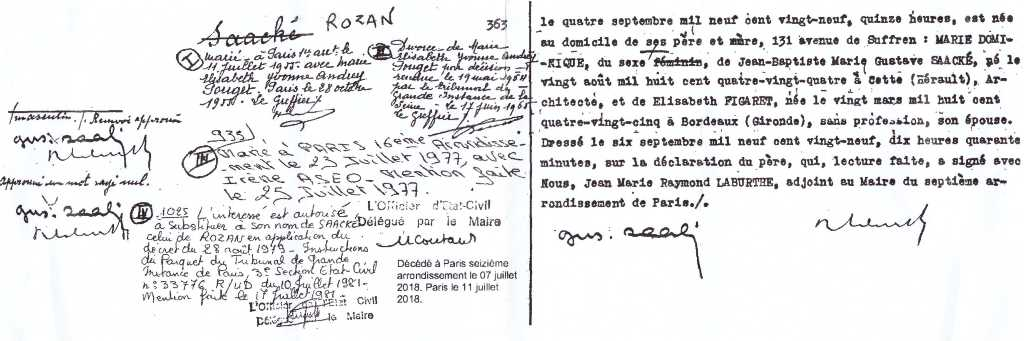 Saacké ROZAN
363
I
mariée à Paris 1er arrt. le
11 juillet 1955 avec Marie
Elisabeth Yvonne Andrey
Fouget. Paris le 28 octobre
1955. Le Greffier
II
Divorce de Marie
Elisabeth Yvonne Andrey
Fouget par décision
rendue le 19 mai 1964
par le tribunal de
Grande Instance de la
Seine - le 17 juin 1965
le Greffier
Renvoi approuvé
gus. saacké
Approuvé un mot rayé nul.
gus. saacké
935
III
Marié à PARIS 16ème Arrondisse-
ment le 23 Juillet 1977, avec
Irène ASEO. Mention faite
le 25 Juillet 1977.
L'Officier d'Etat-Civil
Délégué par le Maire
IV
1025 L'intéressé est autorisé
à substituer à son nom de SAACKÉ
celui de ROZAN en application du
décret du 28 août 1979 - Instructions
du Parquet du Tribunal de Grande
Instance de Paris, 3e Section Etat Civil
n° 33776 R/UD du 10 juillet 1981-
Mention faite le 17 juillet 1981-
L'Officier d'Etat Civil
Délégué le Maire
Décédé à Paris seizième
arrondissement le 07 juillet
2018. Paris le 11 juillet
2018.
le quatre septembre mil neuf cent vingt-neuf, quinze heures, est née
au domicile de ses père et mère, 131 avenue de Suffren : MARIE DOMI-
NIQUE, du sexe féminin, de Jean-Baptiste Marie Gustave SAACKÉ, né le
vingt août mil huit cent quatre-vingt-quatre à Cette (Hérault), Ar-
chitecte, et de Elisabeth FIGARET, née le vingt mars mil huit cent
quatre-vingt-cinq à Bordeaux (Gironde), sans profession, son épouse.
Dressé le six septembre mil neuf cent vingt-neuf, dix heures quarante
minutes, sur la déclaration du père, qui, lecture faite, a signé avec
Nous, Jean Marie Raymond LABURTHE, adjoint au Maire du septième ar-
rondissement de Paris./.
gus. saacké